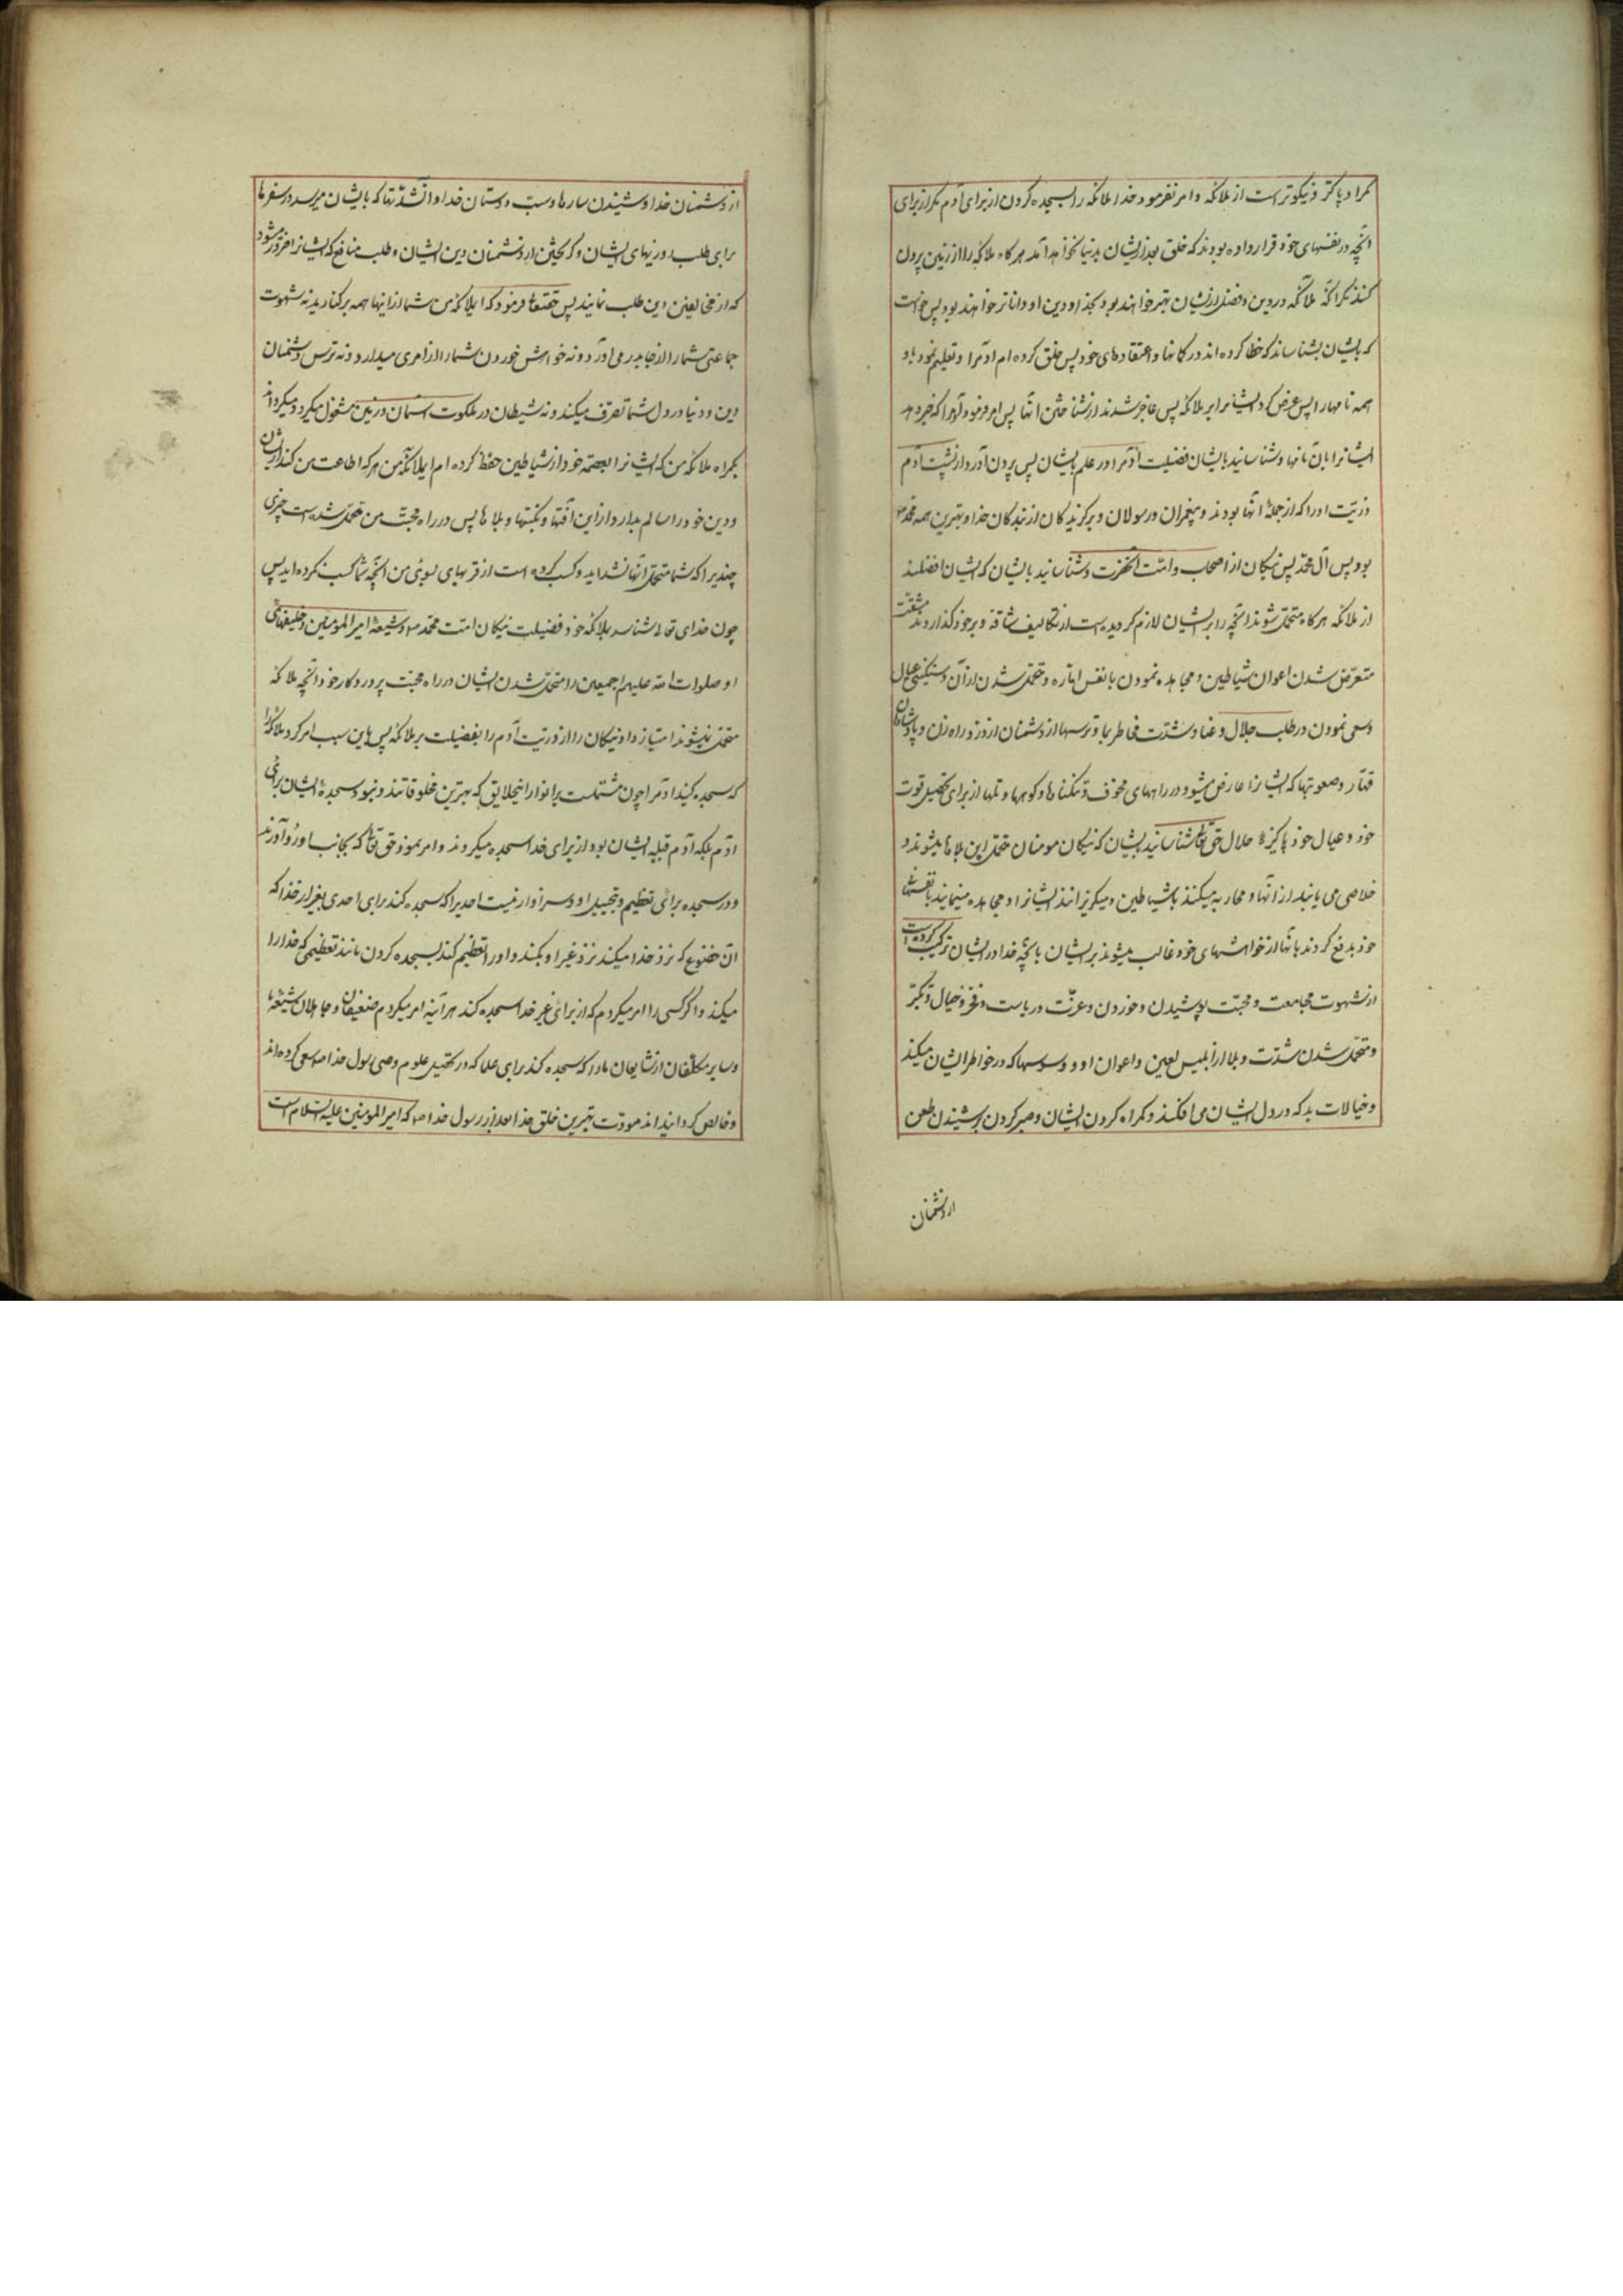 مکر او پاکتر و نیکوتر است از ملائکه و امر نفرمود خدا ملائکه را بسجده کردن از برای آدم مکر از برای
آنچه در نفسهای خود قرار داده بودند که خلق بعد از ایشان بدنیا نخواهد آمد هر کاه ملائکه را از زمین بیرون
کنند مکر آنکه ملائکه در دین و فضل از ایشان بهتر خواهند بود و بخدا و دین او داناتر خواهند بود پس خواست
که بایشان بشناساند که خطا کرده اند در کمانها و اعتقادهای خود پس خلق کرده ام آدمرا و تعلیم نمود باو
همه نامهارا پس عرض کرد ایشانرا بر ملائکه پس عاجز شدند از شناختن آنها پس امر فرمود آدمرا که خبر دهد
ایشانرا بآن نامها و شناسانید بایشان فضیلت آدمرا در علم بایشان پس بیرون آورد از پشت آدم
ذریّت او را که از جملهٔ آنها بودند پیغمبران و رسولان و برکزیدکان از بندکان خدا و بهترین همه محمّد ص
بود پس آل محمّد پس نیکان از اصحاب و امّت آنحضرت و شناسانید بایشان که ایشان افضلند
از ملائکه هر کاه متحمّل شوند آنچه را بر ایشان لازم کردیده است از تکالیف شاقه و بر خود کذارند مشقّت
متعرّض شدن اعوان شیاطین و مجاهده نمودن با نفس امّاره و متحمّل شدن از آن و سنکینی عیال
و سعی نمودن در طلب حلال و عنا و شدّت مخاطرها و ترسها از دشمنان از دزد و راه زن و پادشاهان
قهّار و صعوبتها که ایشانرا عارض میشود در راههای مخوف و تنکناها و کوهها و تلها از برای تحصیل قوت
خود و عیال خود پاکیزهٔ حلال حق تعالی شناسانید بایشان که نیکان مومنان متحمّل این بلاها میشوند و
خلاصی می یابند از آنها و محاربه میکنند با شیاطین و میکریزانند ایشانرا و مجاهده مینمایند با نفسهای
خود بدفع کردن آنها از خواهشهای خود و غالب میشوند بر ایشان با آنچه خدا در ایشان ترکیب کرده است
از شهوت مجامعت و محبّت پوشیدن و خوردن و عزّت و ریاست و فخر و خیال و تکبّر
و متحمّل شدن شدّت و بلا از ابلیس لعین و اعوان او و وسوسها که در خواطر ایشان میکند
و خیالات بد که در دل ایشان می افکند و کمراه کردن ایشان و صبر کردن بر شنیدن طعن
از دشمنان
از دشمنان خدا و شنیدن سازها و سبّ دوستان خدا و آن شدّتها که بایشان میرسد در سفرها
برای طلب روزیهای ایشان و کریختن از دشمنان دین ایشان و طلب منافع که ایشانرا ضرور میشود
که از مخالفین دین طلب نمایند پس حقتعالی فرمود که ایملائکه من شما از اینها همه برکنارید نه شهوت
جماعتی شما را از جا بدر می آورد و نه خواهش خوردن شما را از امری میدارد و نه ترس دشمنان
دین و دنیا در دل شما تصرّف میکند و نه شیطان در ملکوت آسمان و زمین مشغول میکردد میکرداند
بکمراه ملائکه من که ایشانرا بعصمت خود از شیاطین حفظ کرده ام ایملائکه من هر که اطاعت من کند از ایشان
و دین خود را سالم بدارد از این آفتها و نکبتها و بلاها پس در راه محبّت من متحمّل شده است چیزی
چند یرا که شما متحمّل آنها نشده اید و کسب کرده است از قربهای بسوی من آنچه شما کسب نکرده اید پس
چون خدای تعالی شناساند بملائکه خود فضیلت نیکان امّت محمّد ص و شیعهٔ امیر المومنین و خلیفهای
او صلوات الله علیهم اجمعین را متحمّل شدن ایشان در راه محبّت پروردکار خود آنچه ملائکه
متحمّل نمیشوند امتیاز داد نیکان را از ذریّت آدم را بفضیلت بر ملائکه پس باین سبب امر کرد ملائکه را
که سجده کنید آدمرا چون مشتملست بر انوار اینخلایق که بهترین مخلوقاتند و نبود سجدهٔ ایشان برای
آدم بلکه آدم قبلهٔ ایشان بود از برای خدا سجده میکردند و امر نمود حق تعالی که بجانب او رو آورند
و در سجده برای تعظیم و تبجیل او و سزاوار نیست احدیرا که سجده کند برای احدی بغیر از خدا که
آن خضوع که نزد خدا میکند نزد غیر او بکند و او را تعظیم کند بسجده کردن مانند تعظیمی که خدا را
میکند و اکر کسی را امر میکردم که از برای غیر خدا سجده کند هر آینه امر میکردم ضعیفان و جاهلان شیعهٔ ما
و سایر مکلّفان از شیعیان ما را که سجده کنند برای علما که در تحصیل علوم وصی رسول خدا ص سعی کرده اند
و خالص کردانیده اند مودّت بهترین خلق خدا بعد از رسول خدا ص که امیر المومنین علیه السلام است